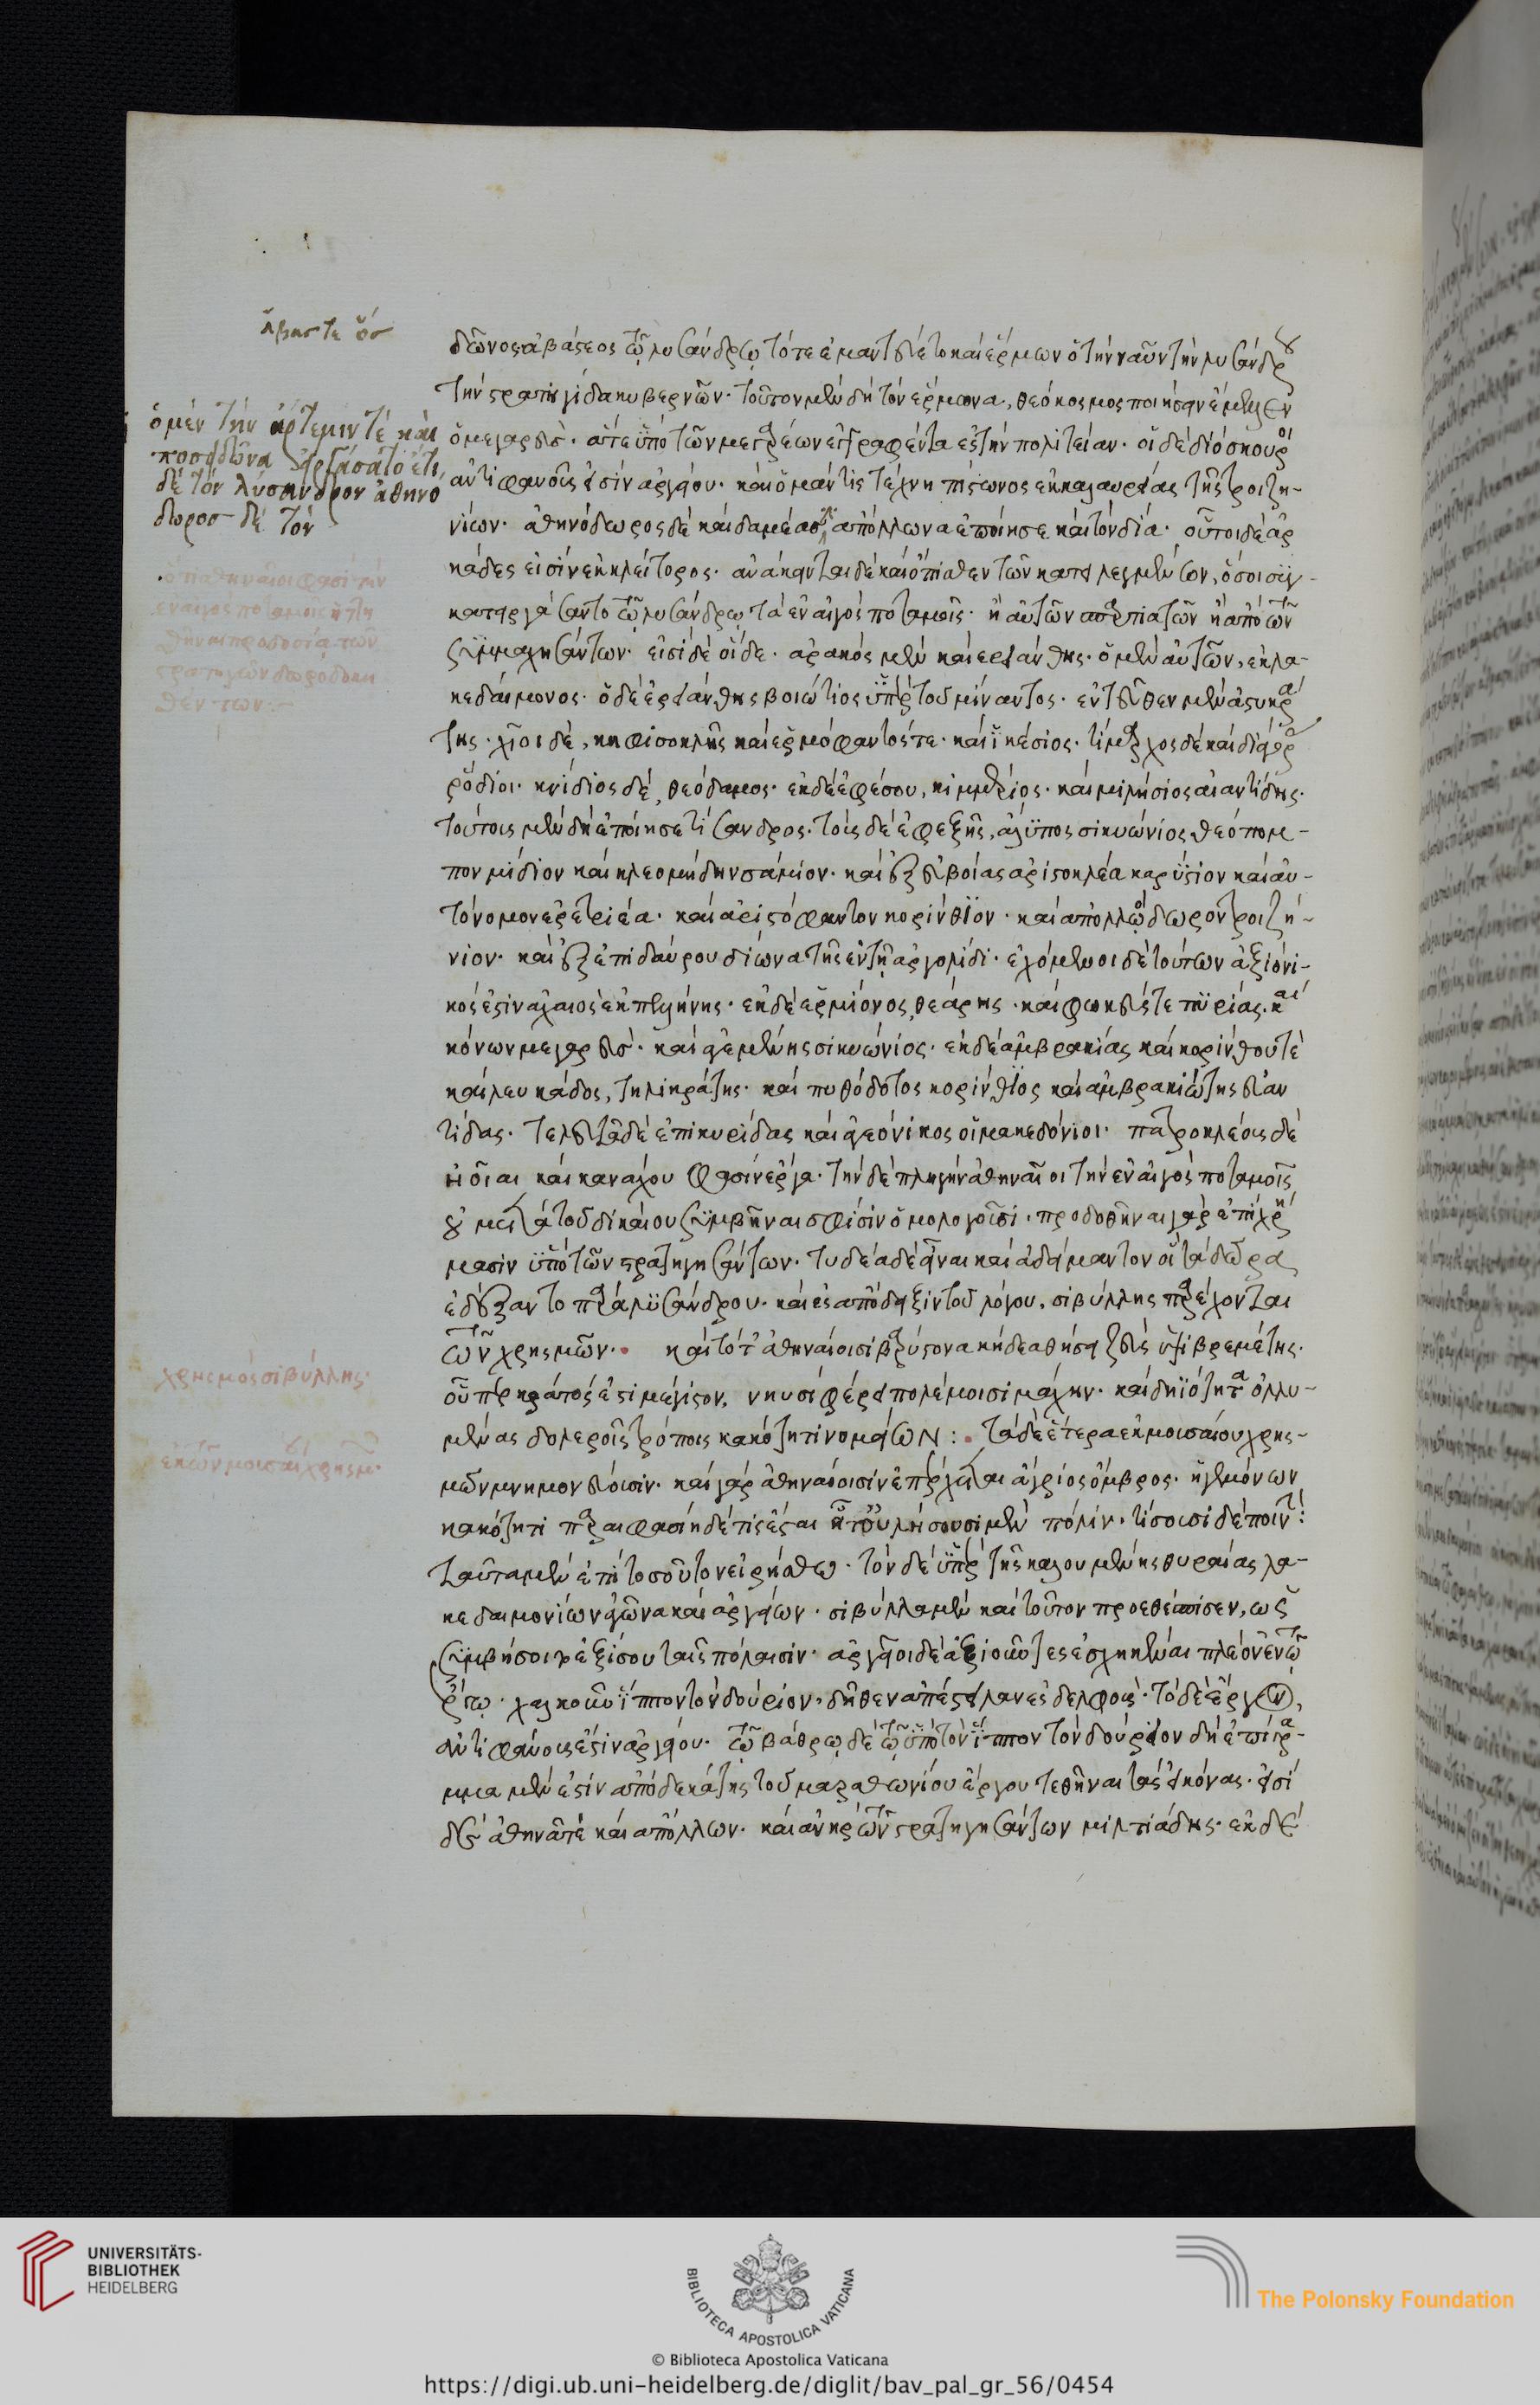 ἄβαστε ὅσ
ὁ μὲν τὴν ἄρτεμιν τὲ καὶ
ποσειδῶνα εἰργάσατο ἔτι
δὲ τὸν λύσανδρον ἀθηνό
δωροσ δὲ τὸν
ὅτι ἀθηναῖοι φασὶ τὴν
ἐν αἰγὸς ποταμοῖς
προδοσία τῶν
στρατηγῶν
χρησμὸς σιβύλλης
ἐκ τῶν μουσαίου χρησμ
δῶνος ἀβάσεος τῷ λυσάνδρῳ τότε ἐμαντεύετο καὶ ἕρμων ὃ τὴν ναῦν τὴν λυσάνδρου
τὴν στρατηγίδα κυβερνῶν· τοῦτον μὲν δὴ τὸν ἕρμωνα, θεόκοσμος ποιήσειν ἔμελλεν
ὁ μεγαρεὺς· ἅτε ὑπὸ τῶν μεγαρέων ἐγγραφέντα ἐς τὴν πολιτείαν· οἱ δὲ διόσκουροι
ἀντιφάνους εἰσὶν ἀργείου· καὶ ὁ μάντις τέχνη πίσωνος ἐκ καλαυρείας τῆς τροιζη-
νίων· ἀθηνόδωρος δὲ καὶ δαμέας ἀπόλλωνα ἐποίησε καὶ τὸν δία· οὗτοι δὲ ἀρ
κάδες εἰσὶν ἐκ κλείτορος· ἀνάκεινται δὲ καὶ ὄπισθεν τῶν κατειλεγμένων, ὅσοι συγ-
κατειργάσαντο τῷ λυσάνδρῳ τὰ ἐν αἰγὸς ποταμοῖς· ἢ αὐτῶν σπαρτιατῶν ἢ ἀπὸ τῶν
συμμαχησάντων· εἰσὶ δὲ οἵδε· ἀρακός μὲν καὶ ἐριάνθης· ὁ μὲν αὐτῶν, ἐκ λα-
κεδαίμονος· ὁ δὲ ἐριάνθης βοιώτιος ὑπὲρ τοῦ μίναντος· ἐντεῦθεν μὲν ἀστυκρά
της· χῖοι δὲ, κηφισοκλῆς καὶ ἑρμόφαντός τε· καὶ ἱκέσιος· τίμαρχος δὲ καὶ διαγόρας
ῥόδιοι· κνίδιος δὲ, θεόδαμος· ἐκ δὲ ἐφέσου, κιμμέριος· καὶ μιλήσιος αἰαντίδης·
τούτοις μὲν δὴ ἐποίησε τίσανδρος· τοὺς δὲ ἐφεξῆς, ἀλύπος σικυώνιος θεόπομ-
πον μίδιον καὶ κλεομήδην σάμιον· καὶ ἐξ εὐβοίας ἀριστοκλέα καρύστιον καὶ αὐ-
τόνομον ἐρετριέα· καὶ ἀριστόφαντον κορίνθιον· καὶ ἀπολλόδωρον τροιζή-
νιον· καὶ ἐξ ἐπιδαύρου δίωνα τῆς ἐν τῇ ἀργολίδι· ἐχόμενοι δὲ τούτων ἀξιόνι-
κός ἐστιν ἀχαιὸς ἐκ πελλήνης· ἐκ δὲ ἑρμιόνος, θεάρης· καὶ φωκεύς τε πυρίας· καὶ
κόνων μεγαρεὺς· καὶ ἀγεμένης σικυώνιος· ἐκ δὲ ἀμβρακίας καὶ κορίνθου τὲ
καὶ λευκάδος, τηλικράτης· καὶ πυθόδοτος κορίνθιος καὶ ἀμβρακιώτης εὐαν
τίδας· τελευτᾶ δὲ ἐπικυρίδας καὶ ἐτεόνικος οἱ μακεδόνιοι· πατροκλέους δὲ
ἠοῖαι καὶ καναχου φασὶν ἔργα· τὴν δὲ πληγὴν ἀθηναῖοι τὴν ἐν αἰγὸς ποταμοῖς
οὐ μετὰ τοῦ δικαίου συμβῆναι σφίσιν ὁμολογοῦσι· προδοθῆναι γὰρ ἐπὶ χρή
μασιν ὑπὸ τῶν στρατηγησάντων· τυδέα δὲ εἶναι καὶ ἀδείμαντον οἳ τὰ δῶρα
ἐδέξαντο παρὰ λυσάνδρου· καὶ ἐς ἀπόδειξιν τοῦ λόγου, σιβύλλης παρέχονται
τῶν χρησμῶν· καὶ τότ' ἀθηναίοισι βαρύστονα κήδεα θήσει ζεὺς ὑψιβρεμέτης·
οὗπερ κράτος ἐστὶ μέγιστον, νηυσὶ φέρει πολέμοισι μάχην· καὶ δηϊότητα ὀλλυ-
μένας δολεροῖς τρόποις κακότητι νομάων :· τὰ δὲ ἕτερα ἐκ μουσαίου χρησ-
μῶν μνημονεύουσιν· καὶ γὰρ ἀθηναίοισιν ἐπέρχεται ἄγριος ὄμβρος· ἡγεμόνων
κακότητι παραιφασίη δέ τις ἔσται ἥττης οὐ λήσουσι μὲν πόλιν· τίσουσι δὲ ποινὴν:
ταῦτα μὲν ἐπὶ τοσοῦτον εἰρήσθω· τὸν δὲ ὑπὲρ τῆς καλουμένης θυραίας λα-
κεδαιμονίων ἀγῶνα καὶ ἀργείων· σίβυλλα μὲν καὶ τοῦτον προεθέσπισεν, ὡς
συμβήσοιτο ἐξίσου ταῖς πόλεσιν· ἀργεῖοι δὲ ἀξιοῦντες ἐσχηκέναι πλέον ἐν τῷ
ἔργῳ· χαλκοῦν ἵππον τὸν δούριον, δῆθεν ἀπέστειλαν ἐς δελφούς· τὸ δὲ ἔργον,
ἀντιφάνους ἐστὶν ἀργείου· τῷ βάθρῳ δὲ τῷ ὑπὸ τὸν ἵππον τὸν δούρειον δὴ ἐπίγρα-
μμα μέν ἐστιν ἀπὸ δεκάτης τοῦ μαραθωνίου ἔργου τεθῆναι τὰς εἰκόνας· εἰσὶ
δὲ ἀθηνᾶ τὲ καὶ ἀπόλλων· καὶ ἀνὴρ τῶν στρατηγησάντων μιλτιάδης· ἐκ δὲ
UNIVERSITÄTS-
BIBLIOTHEK
HEIDELBERG
BIBLIOTECA APOSTOLICA VATICANA
The Polonsky Foundation
© Biblioteca Apostolica Vaticana
https://digi.ub.uni-heidelberg.de/diglit/bav_pal_gr_56/0454